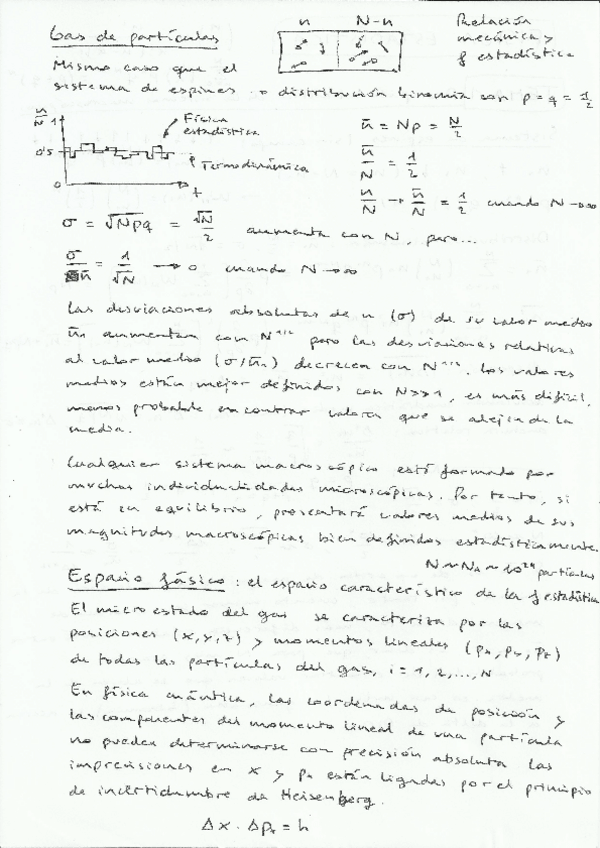 Gas de partículas
n N-n
Relación
mecánica y
f estadística
Mismo caso que el
sistema de espines → distribución binomia con p = q = 1/2
n/N 1
0'5
0
Física
estadística
Termodinámica
t
n̄ = Np = N/2
n̄/N = 1/2
n/N → n̄/N = 1/2 cuando N→∞
σ = √Npq = √N/2 aumenta con N, pero...
σ/n̄ = 1/√N → 0 cuando N→∞
Las desviaciones absolutas de n (σ) de su valor medio
n̄ aumentan con N^1/2 pero las desviaciones relativas
al valor medio (σ/n̄) decrecen con N^1/2. Los valores
medios están mejor definidos con N>>1, es más difícil,
menos probable encontrar valores que se alejen de la
media.
Cualquier sistema macroscópico está formado por
muchas individualidades microscópicas. Por tanto, si
está en equilibrio, presentará valores medios de sus
magnitudes macroscópicas bien definidos estadísticamente.
N ~ N_A ~ 10^24 partículas
Espacio fásico: el espacio característico de la f estadística
El microestado del gas se caracteriza por las
posiciones (x, y, z) y momentos lineales (px, py, pz)
de todas las partículas del gas, i = 1, 2, ..., N
En física cuántica, las coordenadas de posición y
las componentes del momento lineal de una partícula
no pueden determinarse con precisión absoluta las
imprecisiones en x y px están ligadas por el principio
de incertidumbre de Heisenberg.
Δx · Δpx = h